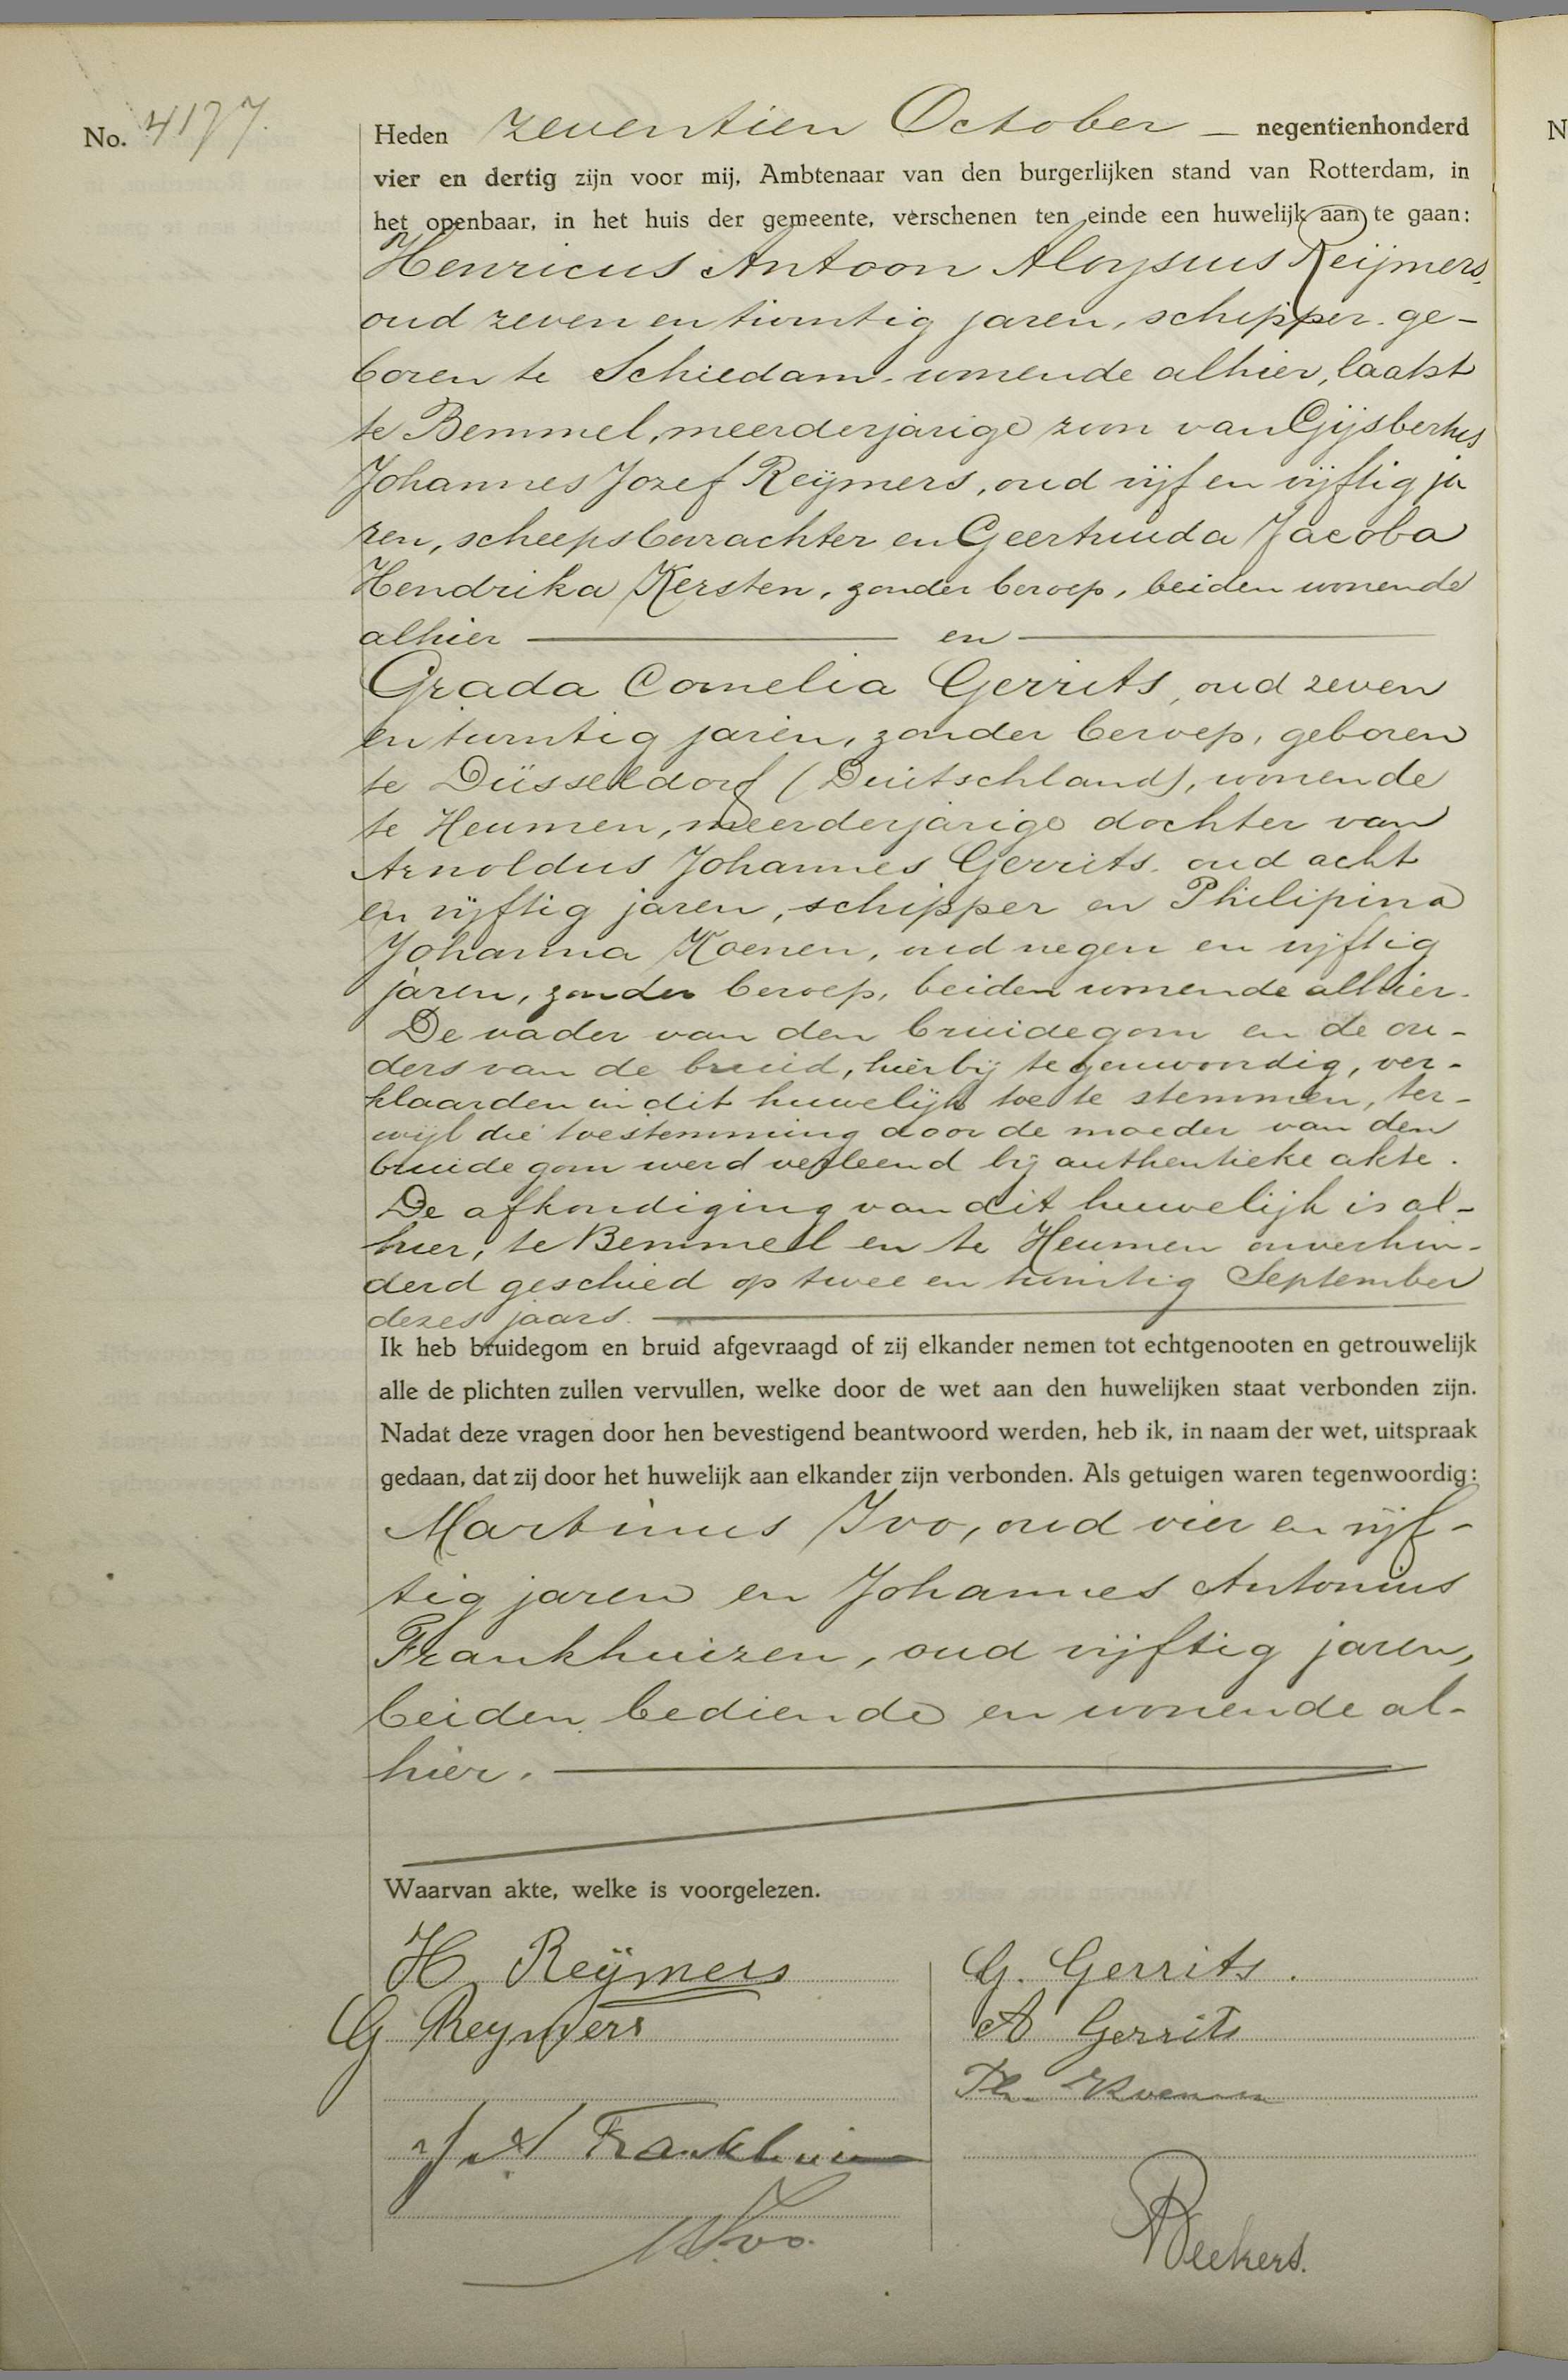 No. 4177.
Heden zeventien October — negentienhonderd
vier en dertig zijn voor mij, Ambtenaar van den burgerlijken stand van Rotterdam, in
het openbaar, in het huis der gemeente, verschenen ten einde een huwelijk aan te gaan:
Henricus Antoon Aloysius Reijmers,
oud zeven en twintig jaren, schipper, ge-
boren te Schiedam, wonende alhier, laatst
te Bemmel, meerderjarige zoon van Gijsbertus
Johannes Jozef Reijmers, oud vijf en vijftig ja
ren, scheepsbevrachter en Geertruida Jacoba
Hendrika Kersten, zonder beroep, beiden wonende
alhier — en —
Grada Cornelia Gerrits, oud zeven
en twintig jaren, zonder beroep, geboren
te Düsseldorf (Duitschland), wonende
te Heumen, meerderjarige dochter van
Arnoldus Johannes Gerrits, oud acht
en vijftig jaren, schipper en Philipina
Johanna Koenen, oud negen en vijftig
jaren, zonder beroep, beiden wonende alhier.
De vader van den bruidegom en de ou-
ders van de bruid, hierbij tegenwoordig, ver-
klaarden in dit huwelijk toe te stemmen, ter-
wijl die toestemming door de moeder van den
bruidegom werd verleend bij authentieke akte.
De afkondiging van dit huwelijk is al-
hier, te Bemmel en te Heumen onverhin-
derd geschied op twee en twintig September
dezes jaars. —
Ik heb bruidegom en bruid afgevraagd of zij elkander nemen tot echtgenooten en getrouwelijk
alle de plichten zullen vervullen, welke door de wet aan den huwelijken staat verbonden zijn.
Nadat deze vragen door hen bevestigend beantwoord werden, heb ik, in naam der wet, uitspraak
gedaan, dat zij door het huwelijk aan elkander zijn verbonden. Als getuigen waren tegenwoordig:
Martinus Ivo, oud vier en vijf-
tig jaren en Johannes Antonius
Frankhuizen, oud vijftig jaren,
beiden bediende en wonende al-
hier. —
Waarvan akte, welke is voorgelezen.
H. Reijmers
G. Gerrits.
G Reymers
A Gerrits
Ph. Koenen
J A Frankhuizen
M. Ivo.
Beekers.